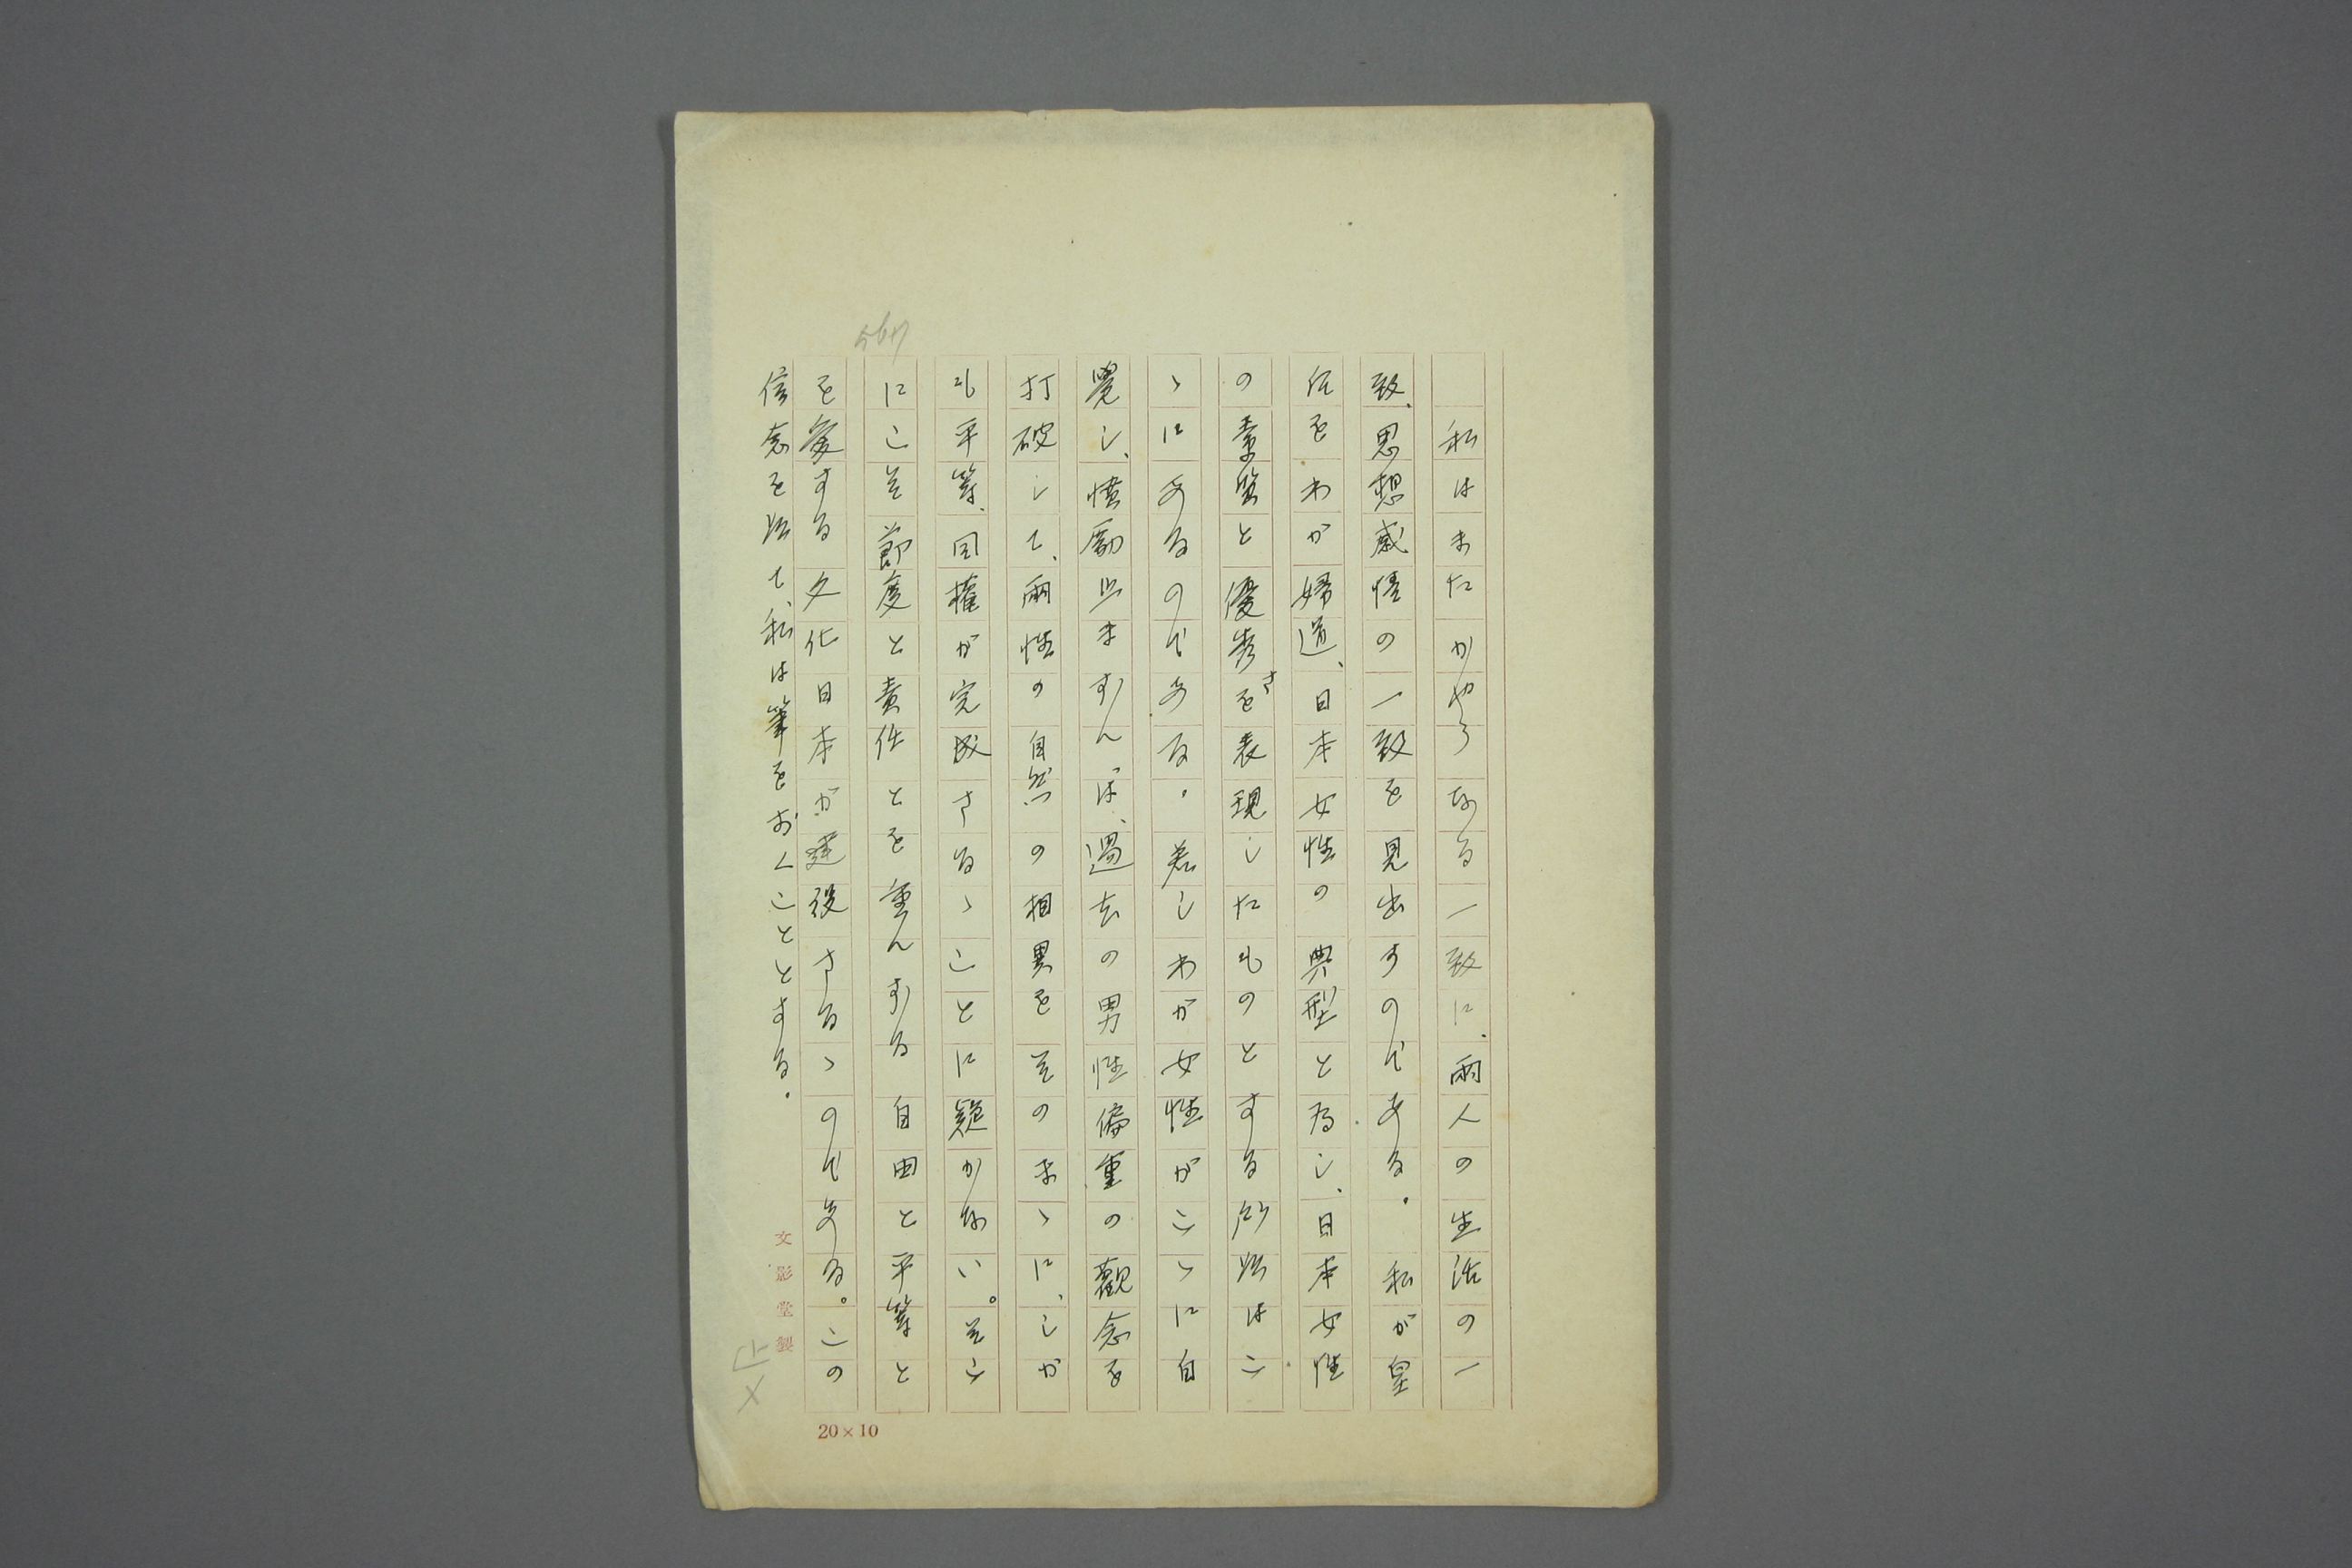 私はまたかやうなる一致に、兩人の生活の一
致、思想感情の一致を見出すのである。私が皇
后をわが婦道、日本女性の典型と為し、日本女性
の素質と優秀さを表現したものとする所以はこ
ゝにあるのである。若しわが女性がこゝに自
覺し、憤勵止まずんば、過去の男性偏重の觀念を
打破して、兩性の自然の相異をそのまゝに、しか
も平等、同權が完成さるゝことに疑がない。そこ
にこそ節度と責任とを重んずる自由と平等と
を愛する文化日本が建設さるゝのである。この
信念を以て、私は筆をおくこととする。
文影堂製
20×10